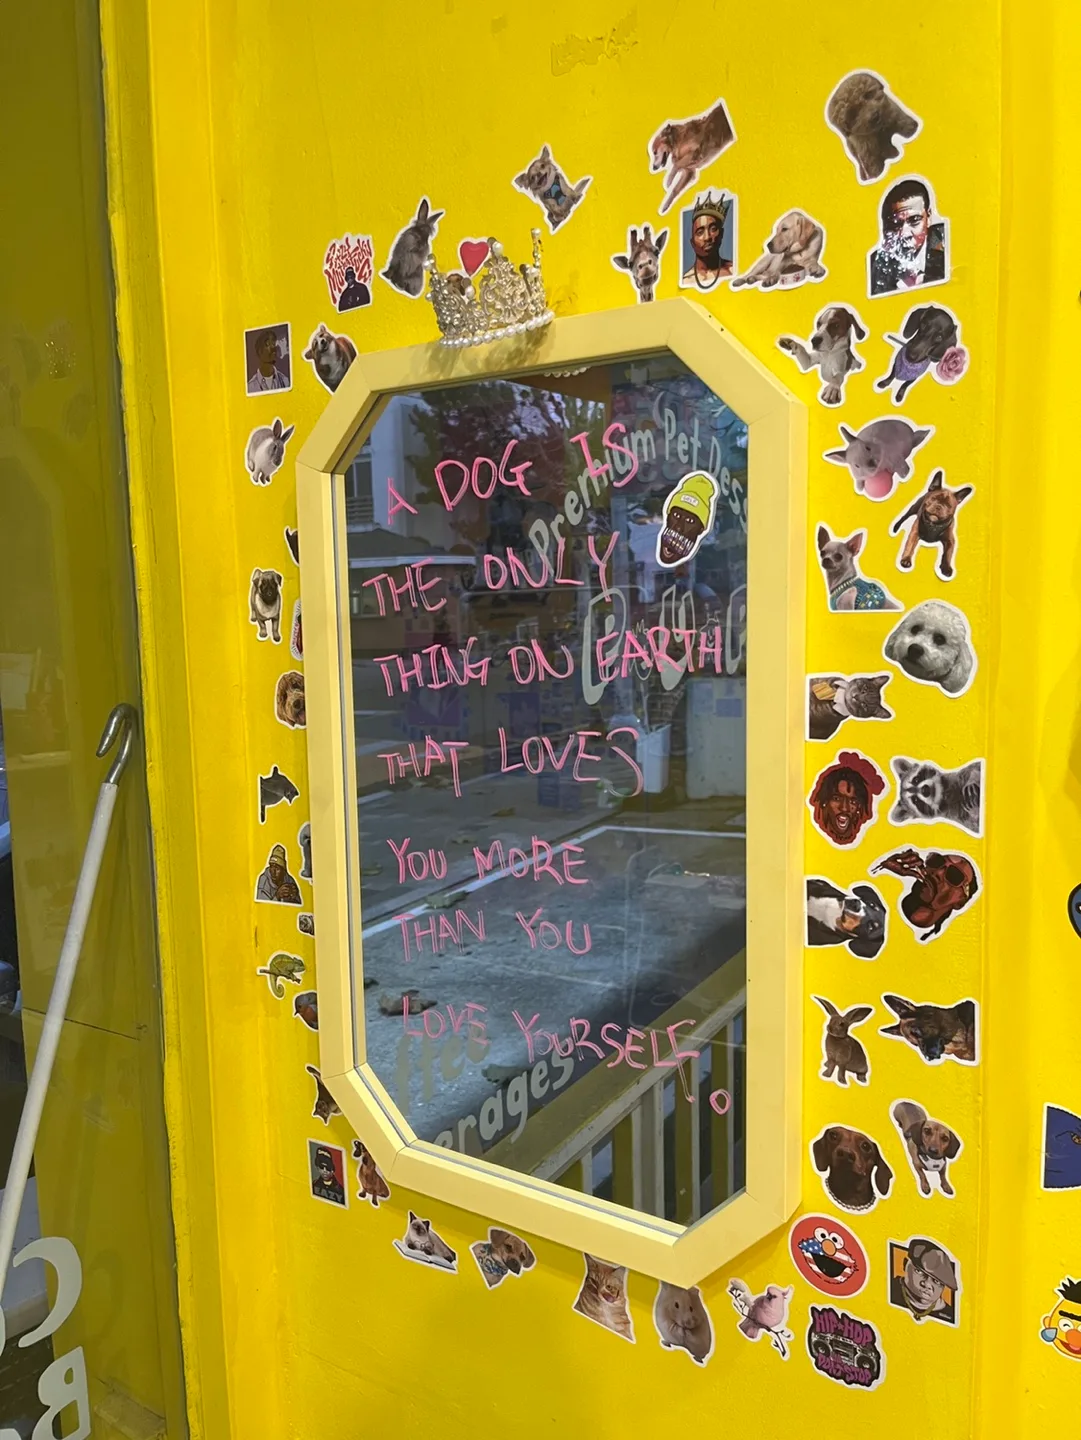 A DOG IS
THE ONLY
THING ON EARTH
THAT LOVES
YOU MORE
THAN YOU
LOVE YOURSELF.
Premium Pet Des
erages
EAZY
HIP-HOP
DON'T STOP